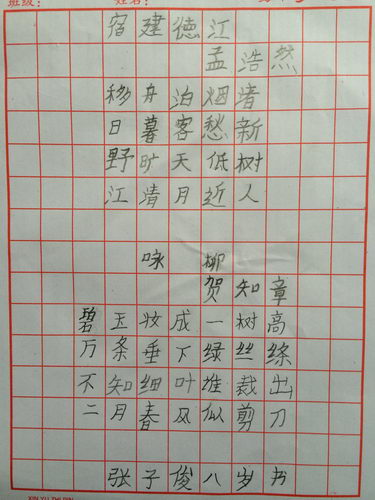 班级： 姓名：
宿建德江
孟浩然
移舟泊烟渚
日暮客愁新
野旷天低树
江清月近人
咏柳
贺知章
碧玉妆成一树高
万条垂下绿丝绦
不知细叶谁裁出
二月春风似剪刀
张子俊八岁书